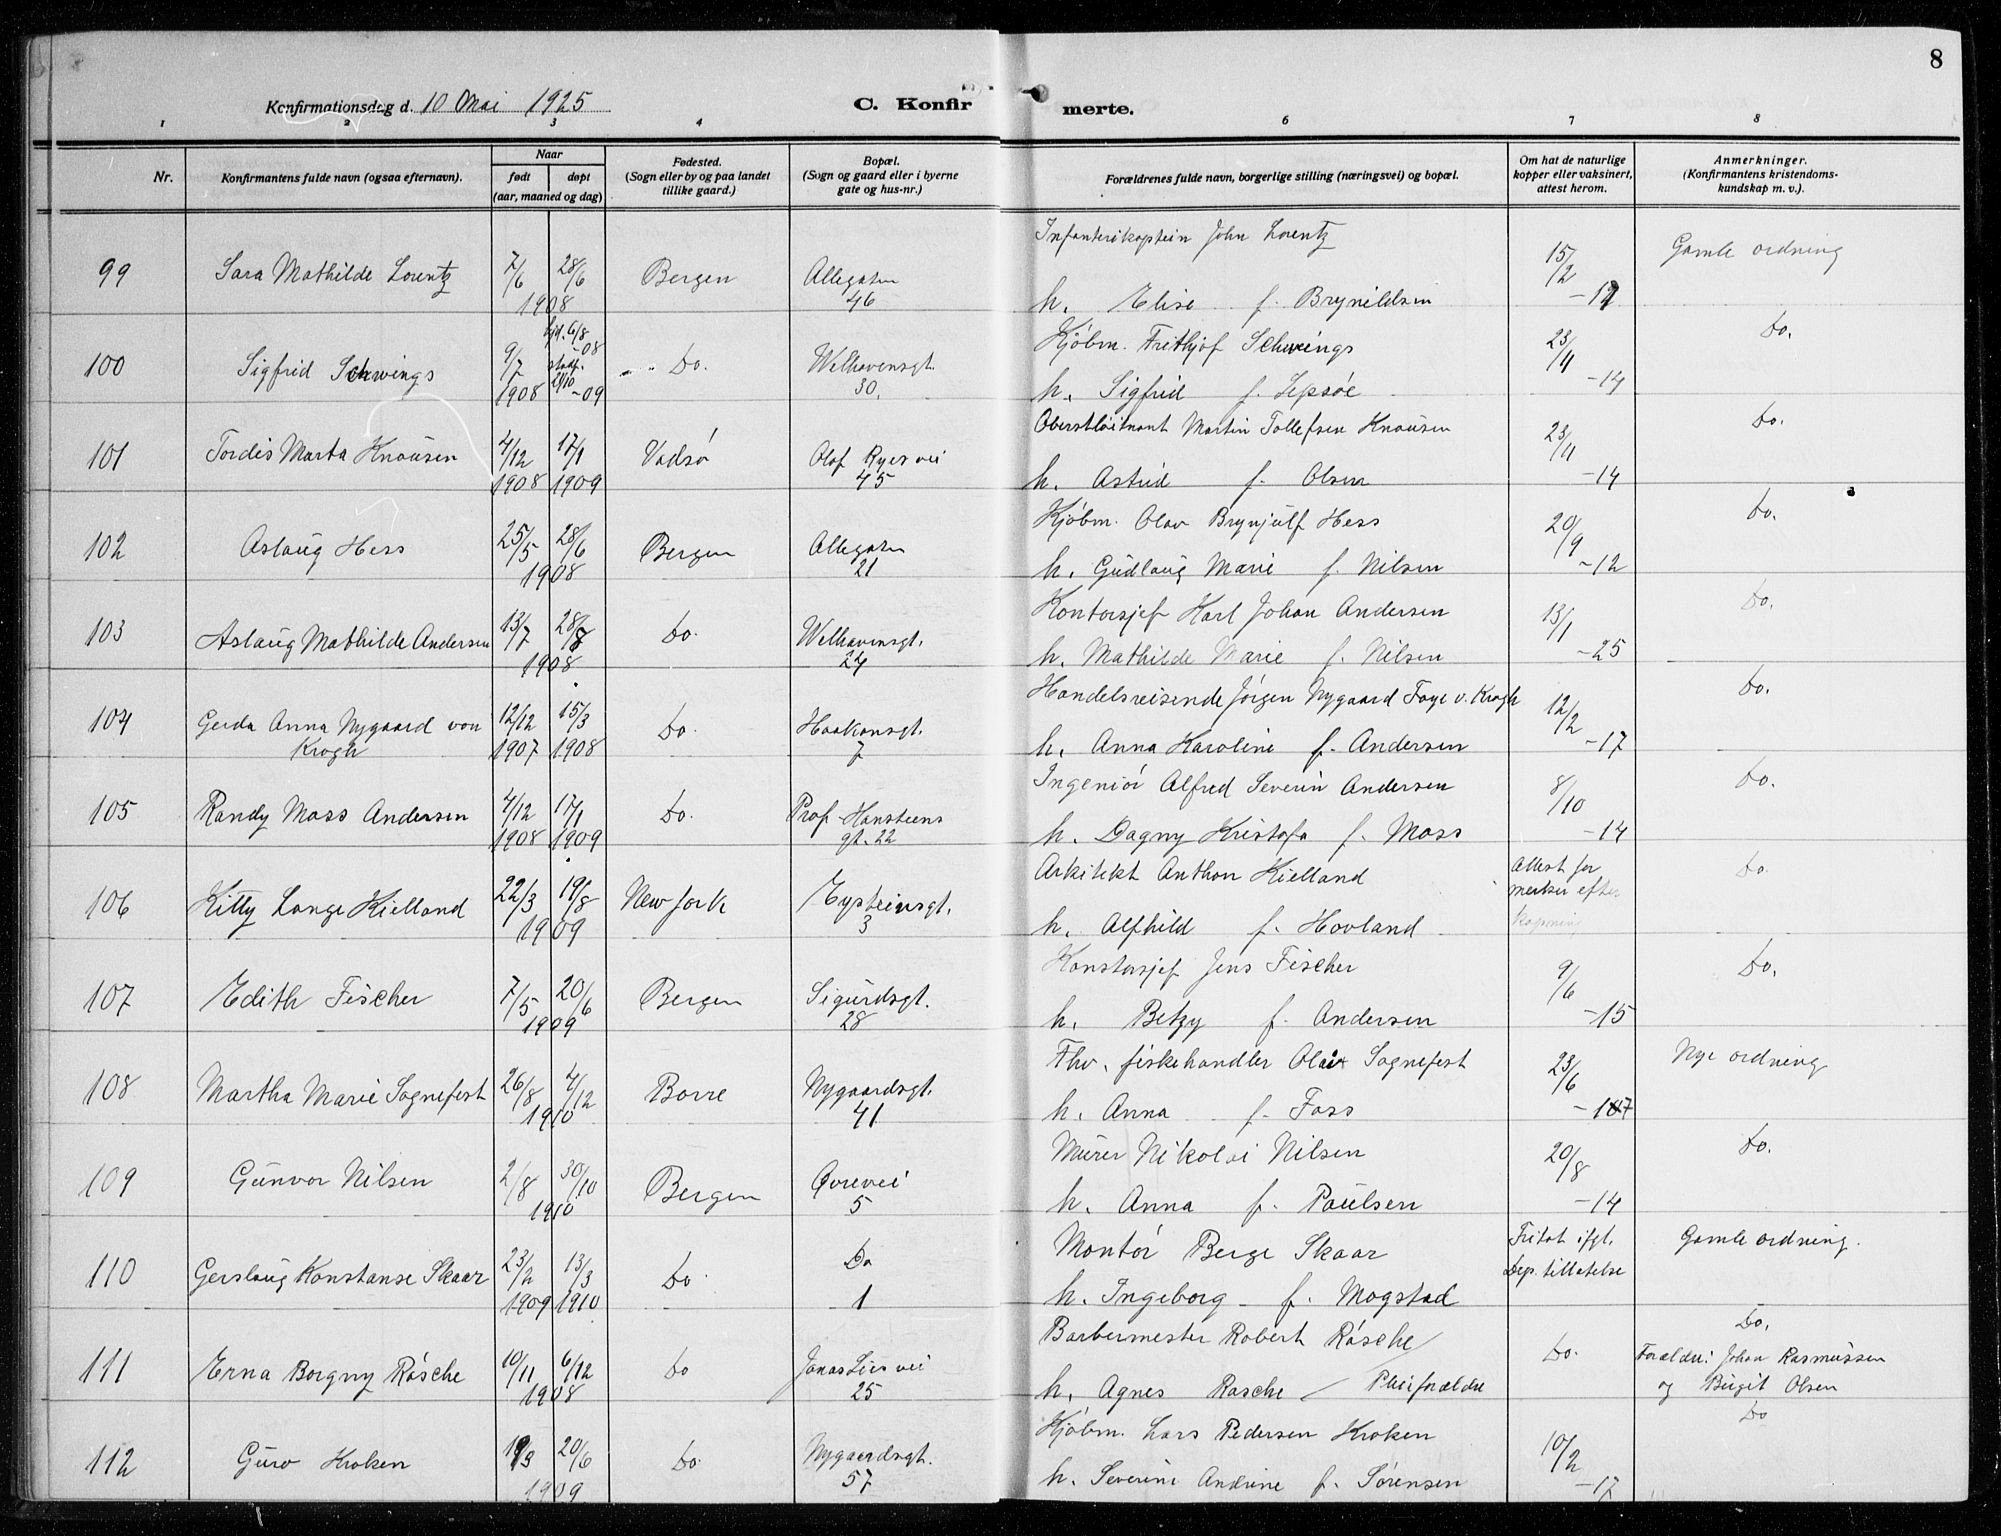 8
Konfirmationsdag d. 10 Mai 1925
C. Konfirmerte.
1 2 3 4 6 7 8
Nr.
Konfirmantens fulde navn (ogsaa efternavn).
Naar
født døpt
(aar, maaned og dag)
Fødested.
(Sogn eller by og paa landet
tillike gaard.)
Bopæl.
(Sogn og gaard eller i byerne
gate og hus-nr.)
Forældrenes fulde navn, borgerlige stilling (næringsvei) og bopæl.
Om hat de naturlige
kopper eller vaksinert,
attest herom.
Anmerkninger.
(Konfirmantens kristendoms-
kundskap m. v.).
Infanterikaptein John Lorentz
99 Sara Mathilde Lorentz 7/6 28/6 Bergen Allegaten 15/2 Gamle ordning
1908 46 h. Elise f. Brynildsen
100 Sigfrid Schwings 9/7 hjd. 6/8 -08 Do. Welhavensgt. Kjøbm. Frithjof Schwings 23/11 Do.
1908 stadf. 21/10 -09 30. h. Sigfrid f. Lepsøe -14
101 Tordis Marta Knousen 4/12 17/1 Vadsø Olaf Ryes vei Oberstløitnant Martin Tollefsen Knousen 23/11 Do.
1908 1909 45 h. Astrid f. Olsen -14
102 Aslaug Hess 25/5 28/6 Bergen Allegaten Kjøbm. Olav Brynjulf Hess 20/9 Do.
1908 21 h. Gudlaug Marie f. Nilsen -12
103 Aslaug Mathilde Andersen 13/7 28/8 Do. Welhavensgt. Kontorsjef Karl Johan Andersen 13/1 Do.
1908 24 h. Mathilde Marie f. Nilsen -25
104 Gerda Anna Nygaard von 12/12 15/3 Do. Haakonsgt. Handelsreisende Jørgen Nygaard Faye v. Krogh 12/2 Do.
Krogh 1907 1908 7 h. Anna Karoline f. Andersen -17
105 Randy Moss Andersen 4/12 17/1 Do. Prof. Hansteens Ingeniør Alfred Severin Andersen 8/10 Do.
1908 1909 gt. 22 h. Dagny Kristofa f. Moss -14
106 Kitty Lange Kielland 22/3 19/8 New Jork Eysteinsgt. Arkitekt Anthon Kielland Attest for Do.
1909 3 h. Alfhild f. Hovland merker efter
107 Edith Fischer 7/5 20/6 Bergen Sigurdsgt. Konstorsjef Jens Fischer 9/6 Do.
1909 28 h. Betzy f. Andersen -15
108 Martha Marie Sognefest 26/8 4/12 Borre Nygaardsgt. Fhv. fiskehandler Olai Sognefest 23/6 Nye ordning
1910 41 h. Anna f. Foss -17
109 Gunvor Nilsen 2/8 30/10 Bergen Øvrevei Murer Nikolai Nilsen 20/8 Do.
1910 5 h. Anna f. Poulsen -14
110 Gerslaug Konstanse Skaar 23/2 13/3 Do. Do Montør Berge Skaar Fritat ifgt. Gamle ordning.
1909 1910 1 h. Ingeborg f. Mogstad Dep. tillatelse
111 Erna Borgny Røsche 10/11 6/12 Do Jonas Lies vei Barbermester Robert Røsche Do. Do.
1908 25 h. Agnes Rasche Pleiforældre Forældre: Johan Rasmussen
og Birgit Olsen
112 Guro Kroken 20/6 Do. Nygaardsgt. Kjøbm. Lars Pedersen Kroken 10/2 Do
1909 57 h. Severine Andrine f. Sørensen -17